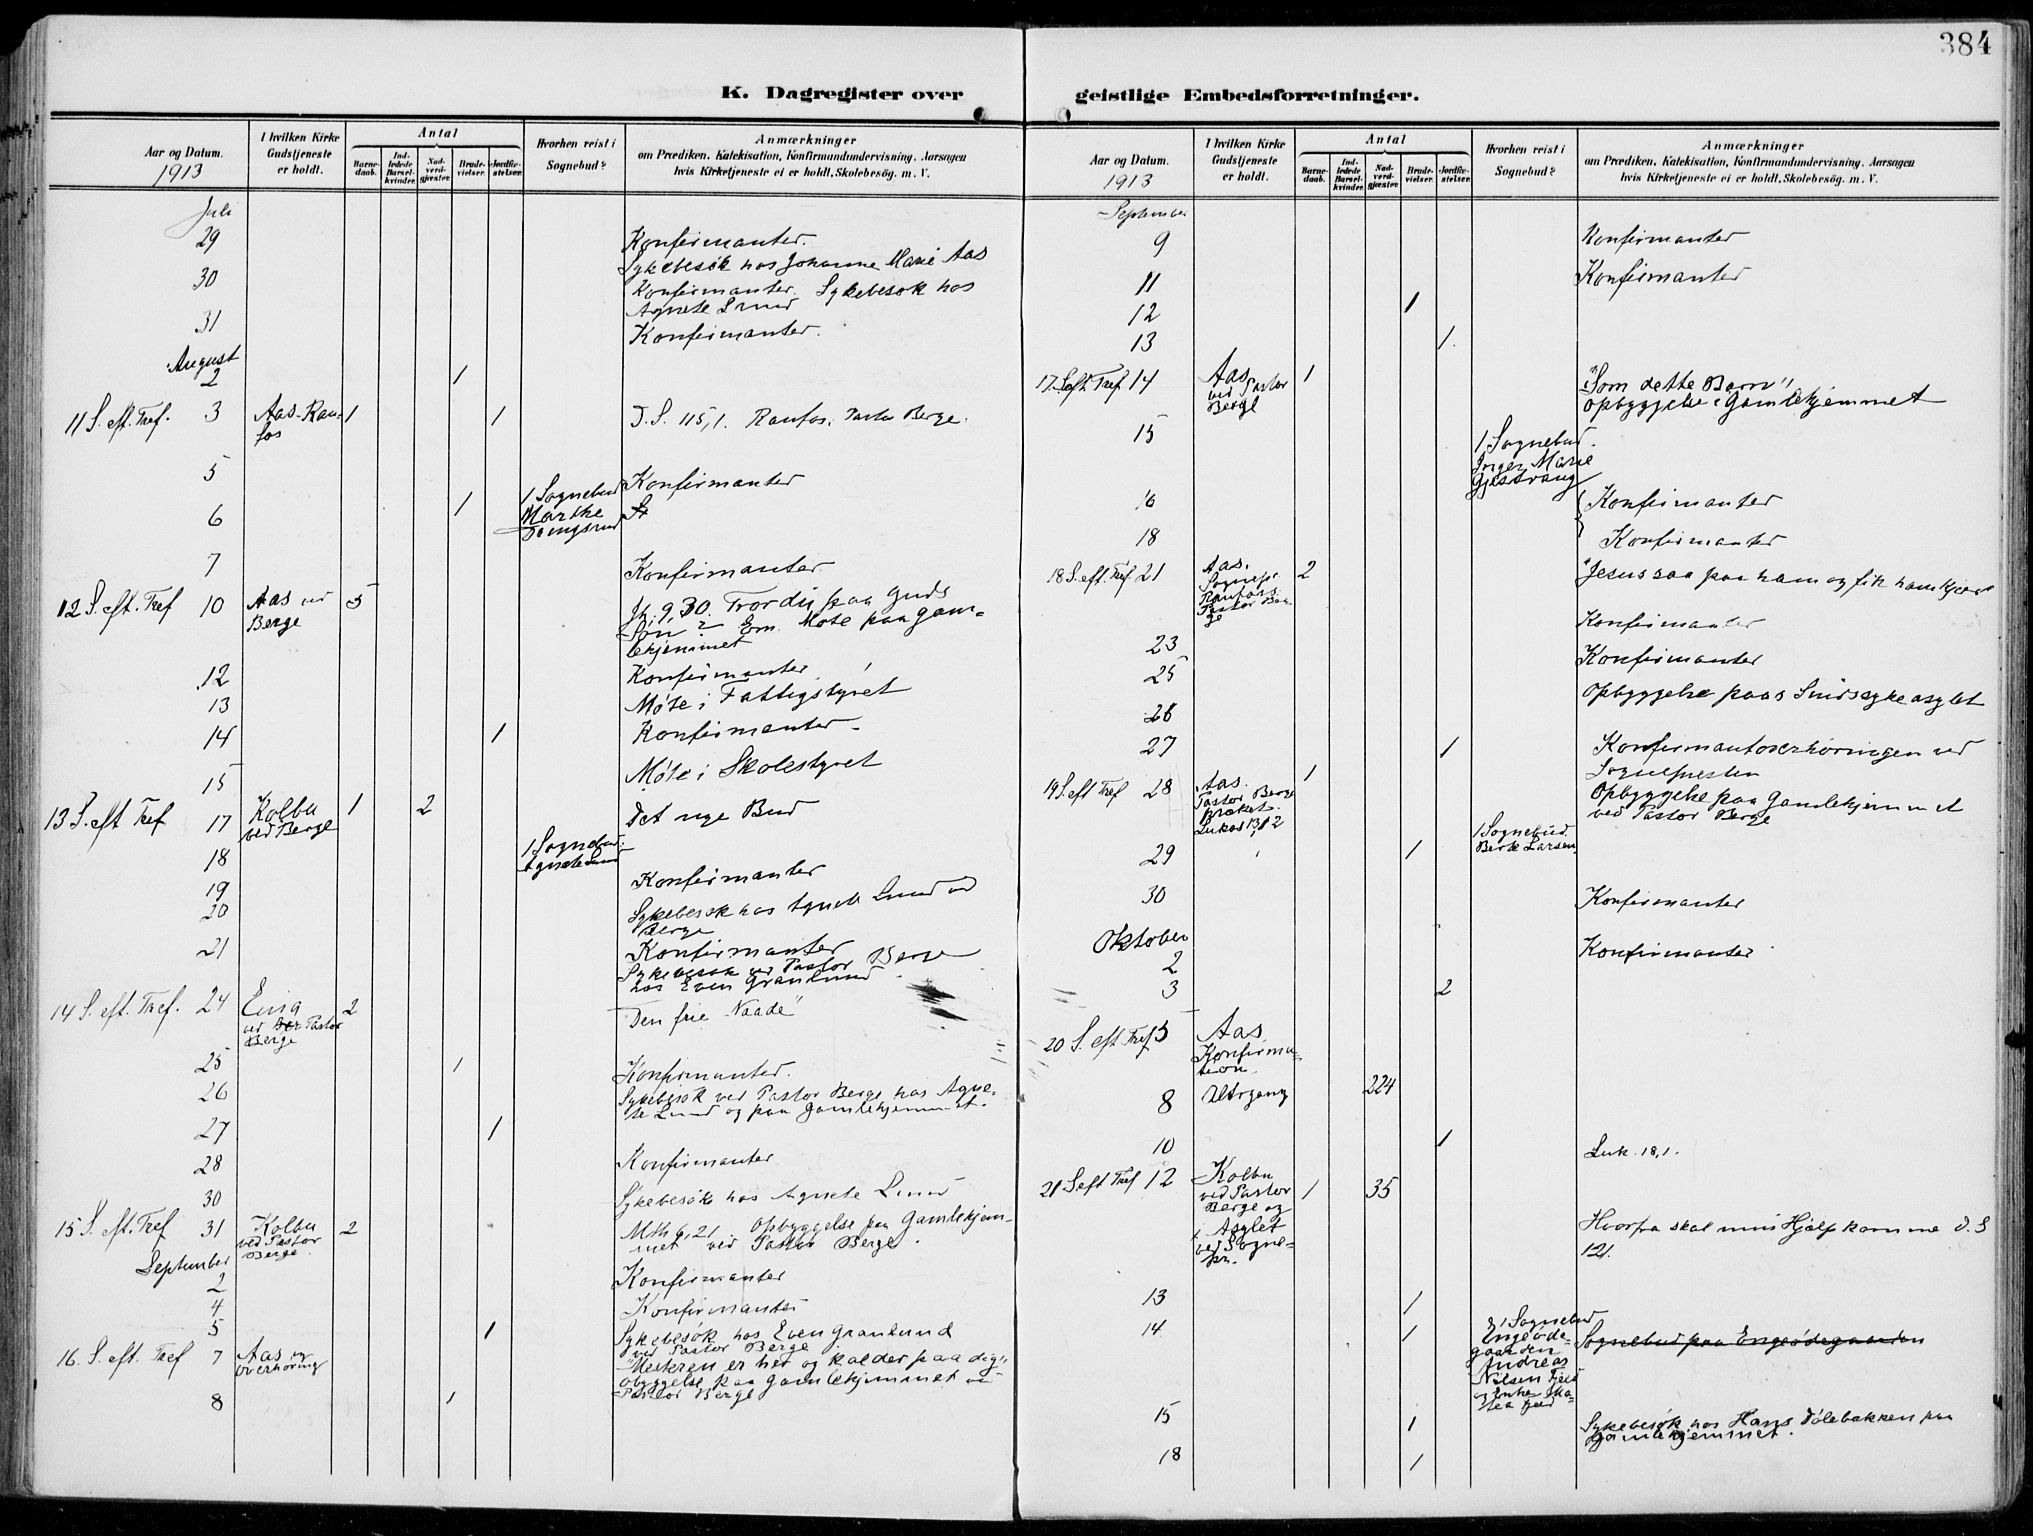 384
K. Dagregister over geistlige Embedsforretninger.
Aar og Datum.
1913
I hvilken Kirke Gudstjeneste er holdt.
Antal
Barne-daab.
Ind-ledede Barsel-kvinder.
Nad-verd-gjæster.
Brude-vielser.
Jordfæ-stelser.
Hvorhen reist i Sognebud?
Anmærkninger
om Prædiken, Katekisation, Konfirmandundervisning, Aarsagen
hvis Kirketjeneste ei er holdt, Skolebesög. m. V.
Juli
29 Konfirmanter.
Sykebesök hos Johanne Marie Aas
30 Konfirmanter. Sykebesok hos
Agnete Lund
31 Konfirmanter.
August
2 1
11 S. eft. Tref. 3 Aas-Rau-
fos 1 1 D.S. 115,1. Raufos: Pastor Berge.
5 Konfirmanter
6 1 1 Sognebud
Marthe
7 Konfirmanter
12 S. eft. Tref 10 Aas ved
Berge 5 Jh. 9,30. Tror du paa Guds
Søn? Em. Møte paa Gam-
lehjemmet
12 Konfirmanter
13 Møte i Fattigstyret
14 1 Konfirmanter
15 Møte i Skolestyret
13 S. eft Tref 17 Kolbu
ved Berge 1 2 Det nye Bud
18 1 Sognebud:
Agnete Lund
19 Konfirmanter
20 Sykebesok hos Agnete Lund ved
Berge
21 Konfirmanter
Sykebesok ved Pastor Berge
hos Even Granlund
14 S. eft. Tref. 24 Eina
ved Pastor
Berge 2 Den frie Naade"
25 1 Konfirmanter.
26 Sykebesok ved Pastor Berge hos Agne-
te Lund og paa Gamlehjemmet.
27 1
28 Konfirmanter
30 Sykebesök hos Agnete Lund
15 S. eft. Tref 31 Kolbu
ved Pastor
Berge. 2 Mth 6,21 Opbyggelse paa Gamlehjem-
met ved Pastor Berge.
September
2 Konfirmanter
4 Konfirmanter
5 1 Sykebesök hos Even Granlund
ved Pastor Berge
16. S. eft. Tref 7 Aas og
overhøring "Mesteren er her og kalder paa dig",
obyggelse paa Gamlehjemmet ved
Pastor Berge
8 1
Aar og Datum.
1913
I hvilken Kirke Gudstjeneste er holdt.
Antal
Barne-daab.
Ind-ledede Barsel-kvinder.
Nad-verd-gjæster.
Brude-vielser.
Jordfæ-stelser.
Hvorhen reist i Sognebud?
Anmærkninger
om Prædiken, Katekisation, Konfirmandundervisning, Aarsagen
hvis Kirketjeneste ei er holdt, Skolebesög. m. V.
September
9 Konfirmanter
11 Konfirmanter
12 1
13 1.
17. S. eft Tref 14 Aas
ved Pastor
Berge 1 "Som dette Barn",
opbyggelse i Gamlehjemmet
15 1 Sognebud.
Inger Marie
Gjestvang
16 Konfirmanter
18 Konfirmanter
18 S. eft. Tref 21 Aas,
Sognepr.
Raufoss:
Pastor Ber-
ge 2 "Jesus saa paa ham og fik ham kjær"
Konfirmanter
23 Konfirmanter
25 Opbyggelse paa Sindssykeasylet
26
27 1 Konfirmantoverhøringen ved
Sognepresten
19 S. eft Tref 28 Aas.
Pastor Berge
Lukas 13,12 1 Opbyggelse paa Gamlehjemmet
ved Pastor Berge
29 1 1 Sognebud.
Larsen
30 Konfirmanter
Oktober
2 Konfirmanter
3 2
20 S. eft Tref 5 Aas
Konfirma-
tion.
8 Altergang 224
10 1 Luk. 18,1.
21 S eft Tref 12 Kolbu
ved Pastor
Berge og
i Asylet
ved Sogne-
pr. 1 35 Hvorfra skal min Hjælp komme D.S
121.
13 1
14 1 Sognebud
Engeøde-
gaarden
Andreas
Nilsen
Sognebud paa Engeødegaarden
15 1 Sykebesök hos Hans Dølebakken paa
Gamlehjemmet.
18 1